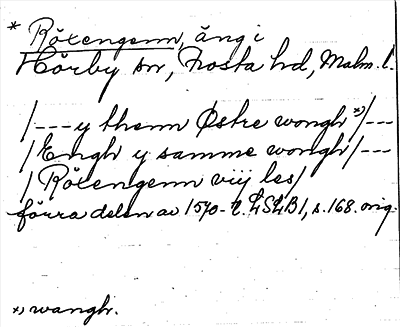 * Röxengenn, äng i
Hörby sn, Frosta hd, Malm. l.
/---y thenn Østre wongh *)/---
/Engh y samme wongh/---
/Röxengenn viij les/
förra delen av 1570-t. LSLB1, s. 168. orig.
*) wangh.